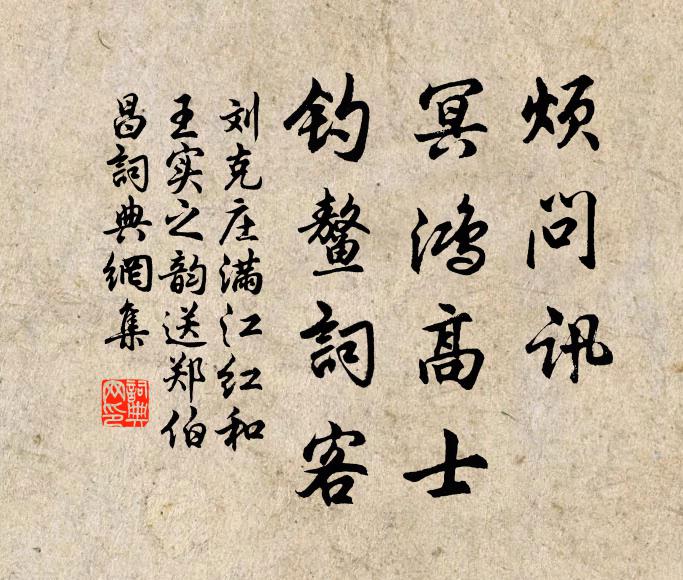 烦问讯
冥鸿高士
钓鳌詞客
刘克庄满江红和
王实之韵送郑伯
昌詞典網集
詞典网印